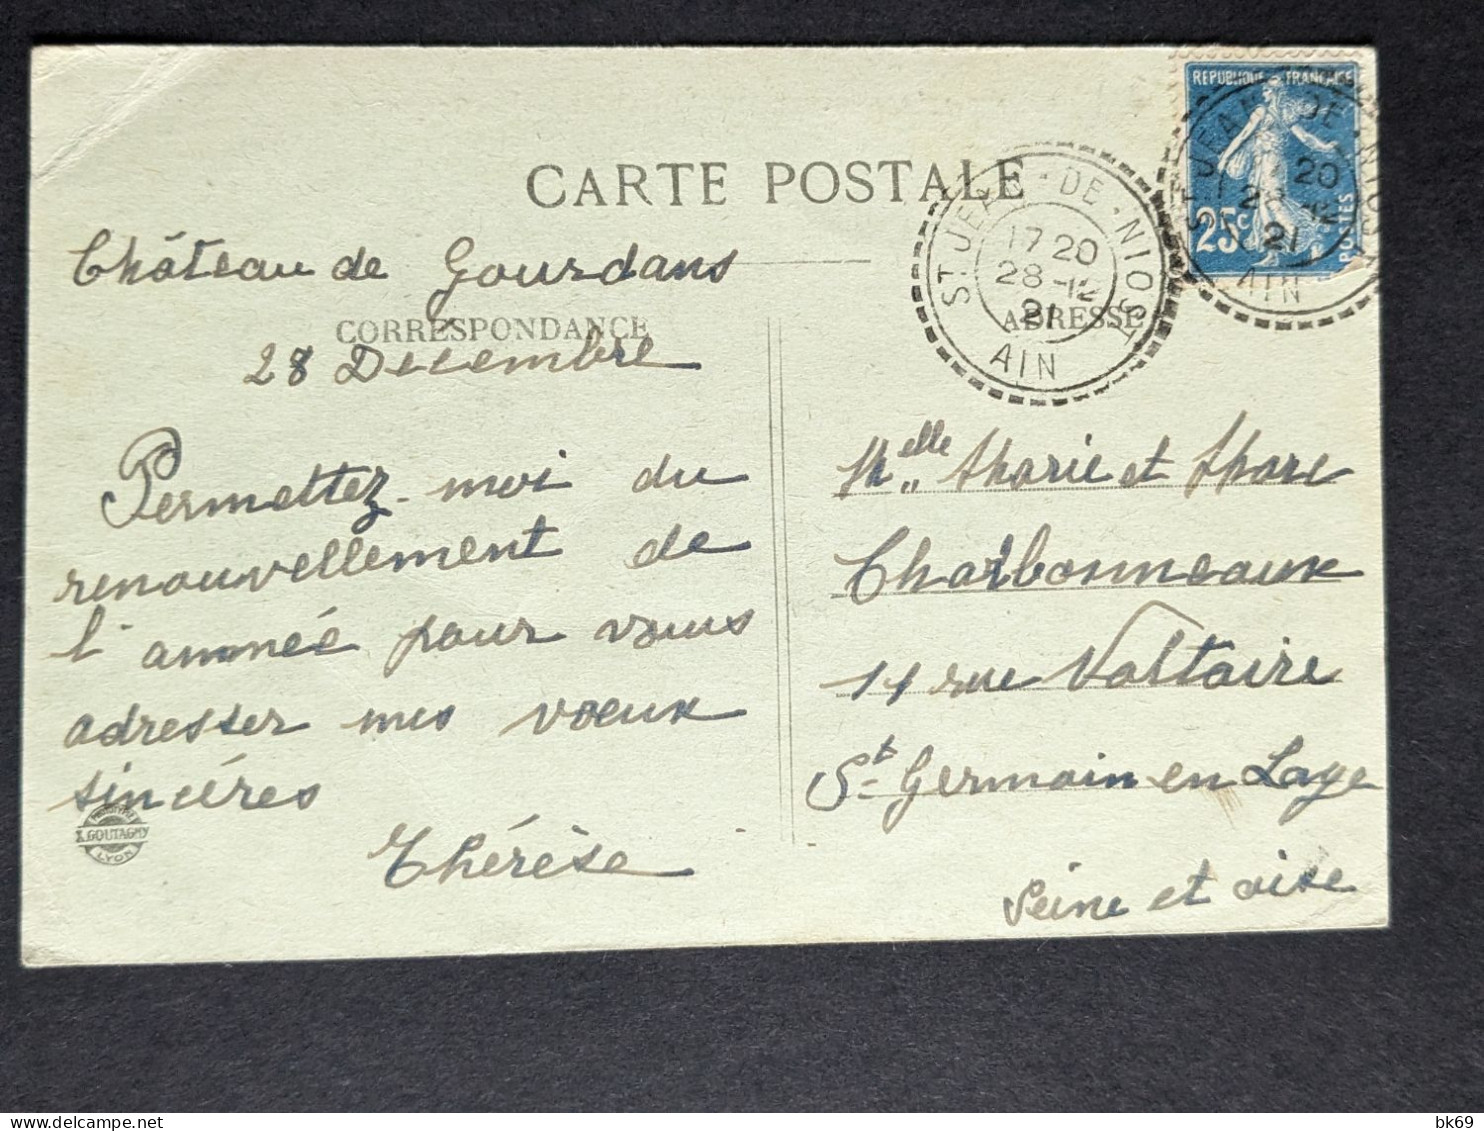 CARTE POSTALE
Château de Gourdans
CORRESPONDANCE
28 Decembre
Permettez-moi du
renouvellement de
l'année pour vous
adresser mes voeux
sincéres
Thérèse
X. GOUTAGNY
LYON
REPUBLIQUE FRANÇAISE
25c
POSTES
ST JEAN-DE-NIOST
17 20
28-12
21
AIN
ST JEAN-DE-NIOST
20
28-12
21
AIN
ADRESSE
Melle Marie et Marc
Charbonneaux
11 rue Voltaire
St Germain en Laye
Seine et oise
bk69